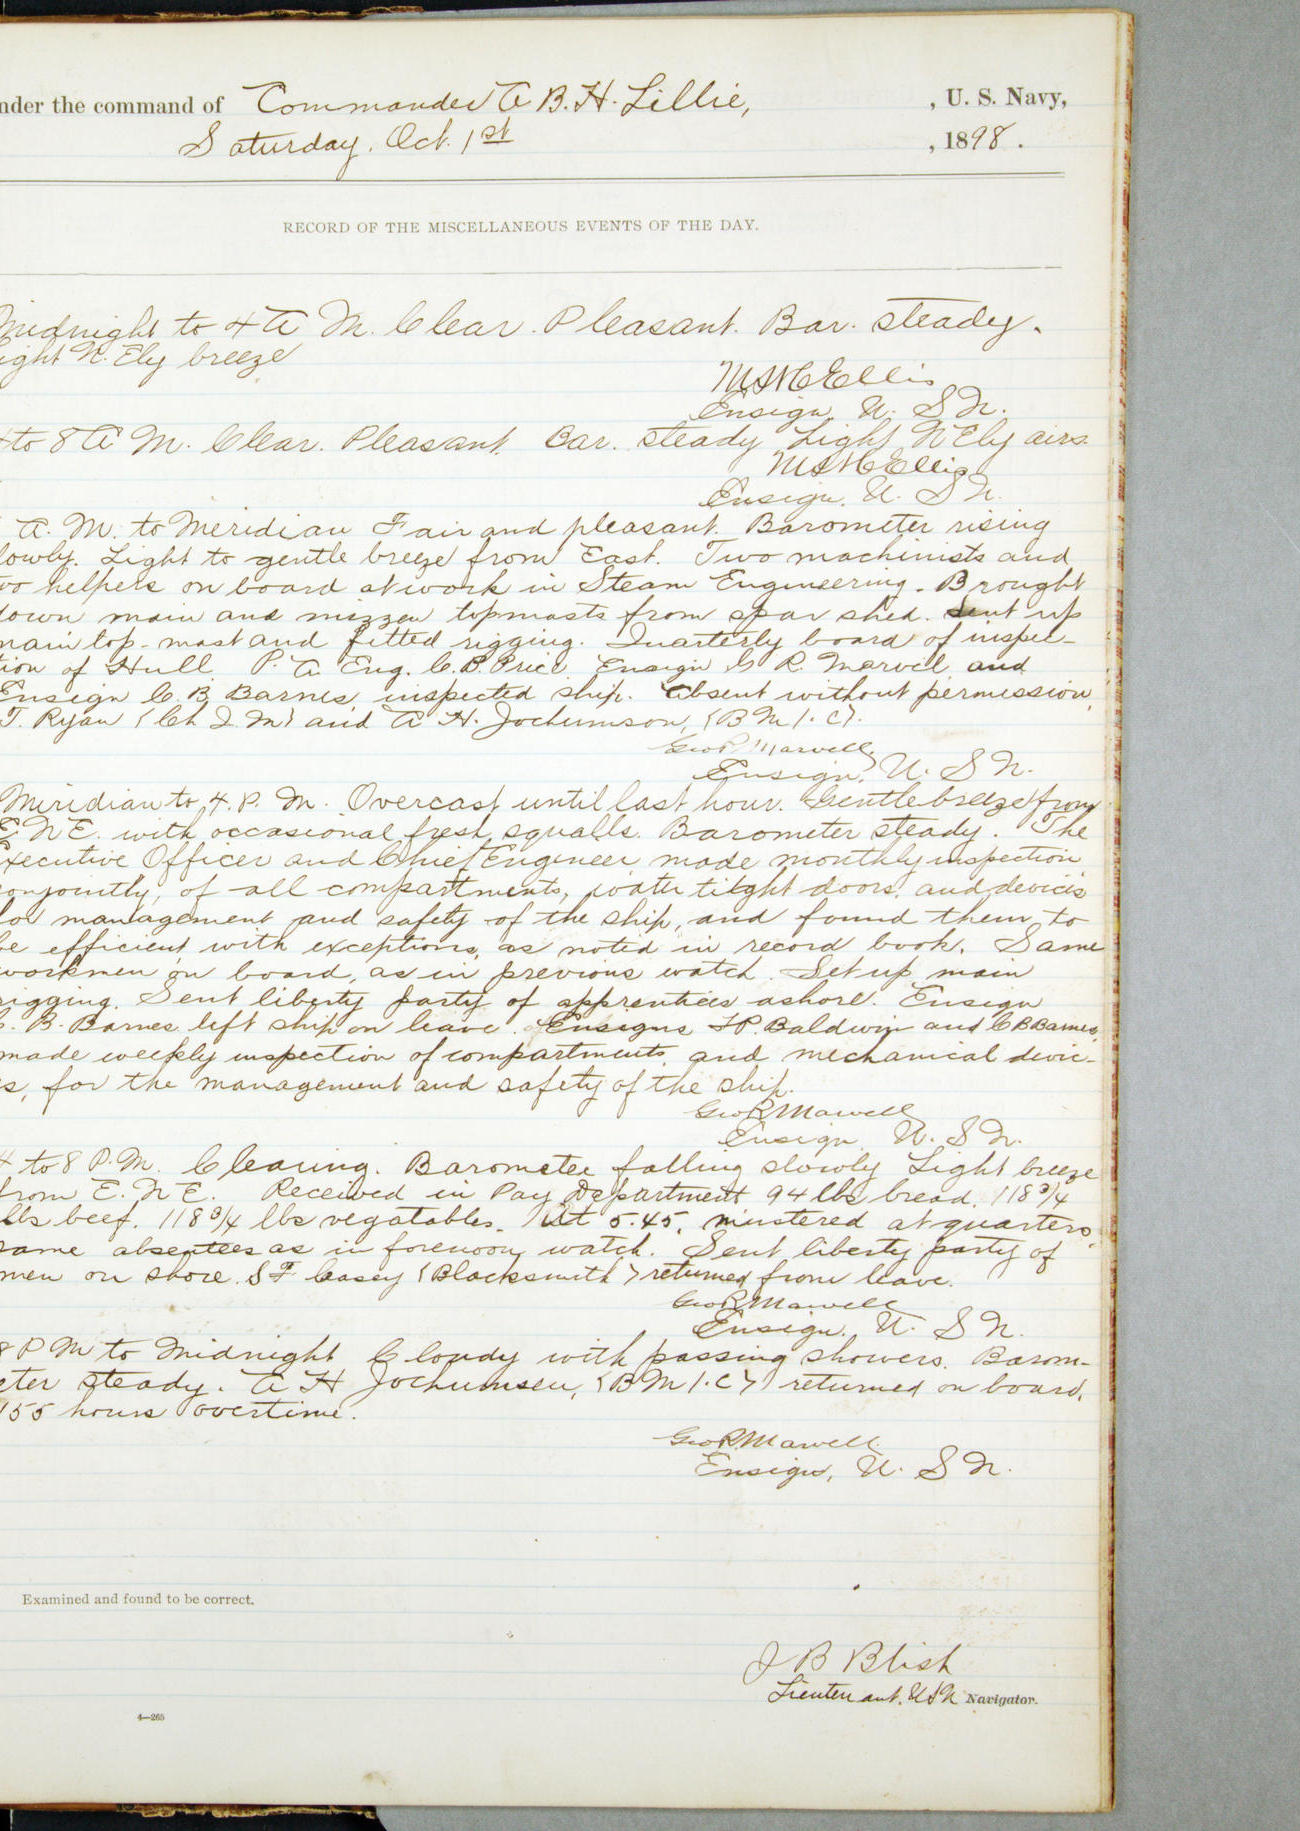 nder the command of Commander A B. H. Lillie, , U. S. Navy,
Saturday, Oct. 1st , 1898.
RECORD OF THE MISCELLANEOUS EVENTS OF THE DAY.
Midnight to 4 A M. Clear. Pleasant. Bar. steady.
ight N. Ely breeze
M St C Ellis
Ensign, U. S N.
to 8 A M. Clear. Pleasant Bar. steady Light N Ely airs
M St C Ellis
Ensign, U. S N.
A. M. to Meridian Fair and pleasant. Barometer rising
lowly. Light to gentle breeze from East. Two machinists and
wo helpers on board at work in Steam Engineering. Brought
down main and mizzen topmasts from spar shed. Sent up
main top-mast and fitted rigging. Quarterly board of inspec-
tion of Hull P. A. Eng. C. B. Price Ensign G R. Marvell and
Ensign C. B. Barnes, inspected ship. Absent without permission,
T. Ryan (Ch G. M) and A H. Jochumson, (B M 1. C).
Geo R Marvell
Ensign, U. S N.
Meridian to 4. P. M. Overcast until last hour. Gentle breeze from
E N E. with occasional fresh squalls. Barometer steady. The
Executive Officer and Chief Engineer made monthly inspection
conjointly, of all compartments, water tight doors, and devices
for management and safety of the ship, and found them to
be efficient with exceptions, as noted in record book. Same
workmen on board, as in previous watch. Set up main
rigging. Sent liberty party of apprentices ashore. Ensign
C. B. Barnes left ship on leave. Ensigns F P. Baldwin and C B Barnes,
made weekly inspection of compartments, and mechanical devic-
es, for the management and safety of the ship.
Geo R Marvell
Ensign, U. S N.
4 to 8 P. M. Clearing. Barometer falling slowly Light breeze
from E. N E. Received in Pay Department 94 lbs bread, 118 3/4
lbs beef. 118 3/4 lbs vegatables. At 5.45, mustered at quarters,
same absentees as in forenoon watch. Sent liberty party of
men on shore. S F Casey (Blacksmith) returned from leave.
Geo R Marvell
Ensign, U. S N.
8 P M to Midnight Cloudy with passing showers. Barom-
eter steady. A H Jochumsen, (B M 1. C) returned on board.
155 hours overtime.
Geo R Marvell
Ensign, U. S N.
Examined and found to be correct.
J B Blish
Lieutenant, U S N Navigator.
4—265